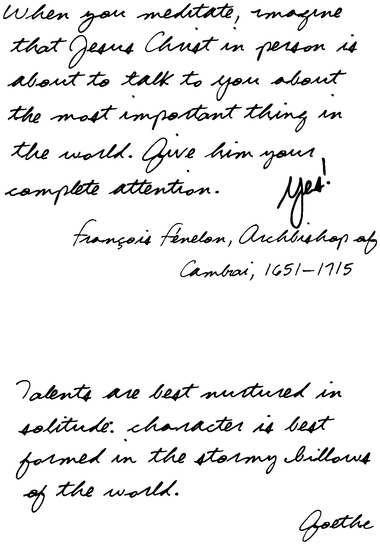 When you meditate, imagine
that Jesus Christ in person is
about to talk to you about
the most important thing in
the world. Give him your
complete attention. Yes!
François Fénelon, Archbishop of
Cambrai, 1651-1715
Talents are best nurtured in
solitude. character is best
formed in the stormy billows
of the world.
Goethe